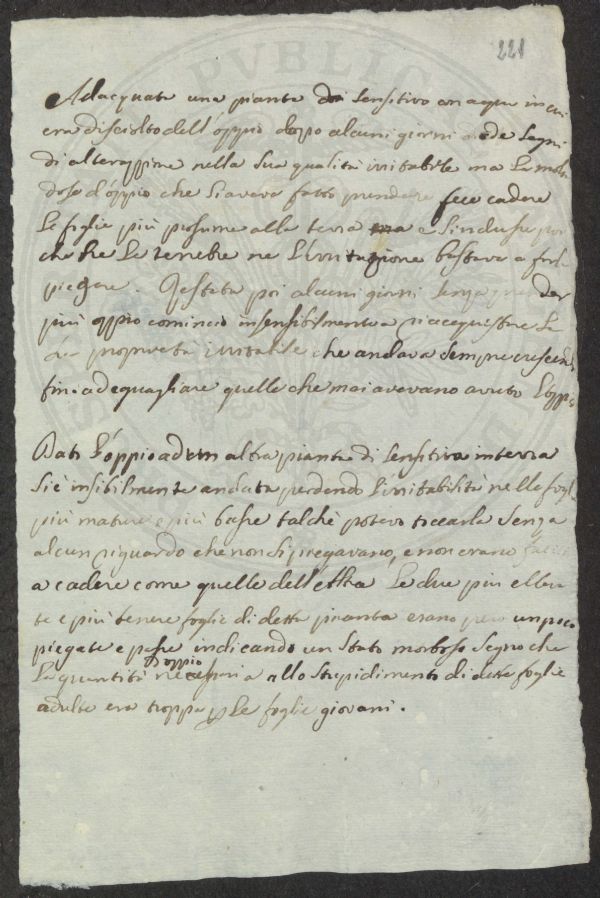 221
Adacquata una pianta di sensitiva con acqua in cui
era disciolto dell'óppio dopo alcuni giorni diede segni
di alterazzione nella sua qualità irritabile ma la molta
dose d'oppio che si aveva fatto prendere fece cadere
le foglie più prossime alla terra e
che ne le tenebre ne l'irritazione bastava a farle
piegare. Restata poi alcuni giorni senza prender
più oppio cominciò insensibilmente a riacquistare la
sua proprietà irritabile che andava sempre crescendo
fin ad eguagliare quelle che mai avevano avuto l'óppio

Dato l'óppio ad un altra pianta di sensitiva in terra
si è insibilmente andata perdendo l'irritabilità nelle foglie
più mature e più basse talchè potevo toccarla senza
alcun riguardo che non si piegavano, e non erano facili
a cadere come quelle dell'altra. Le due più
e più tenere foglie di detta pianta erano però un poco
piegate e passe indicando un stato morboso segno che
la quantità d'oppio necessaria allo stupidimento di dette foglie
adulte era troppa p le foglie giovani.
PVBLIC